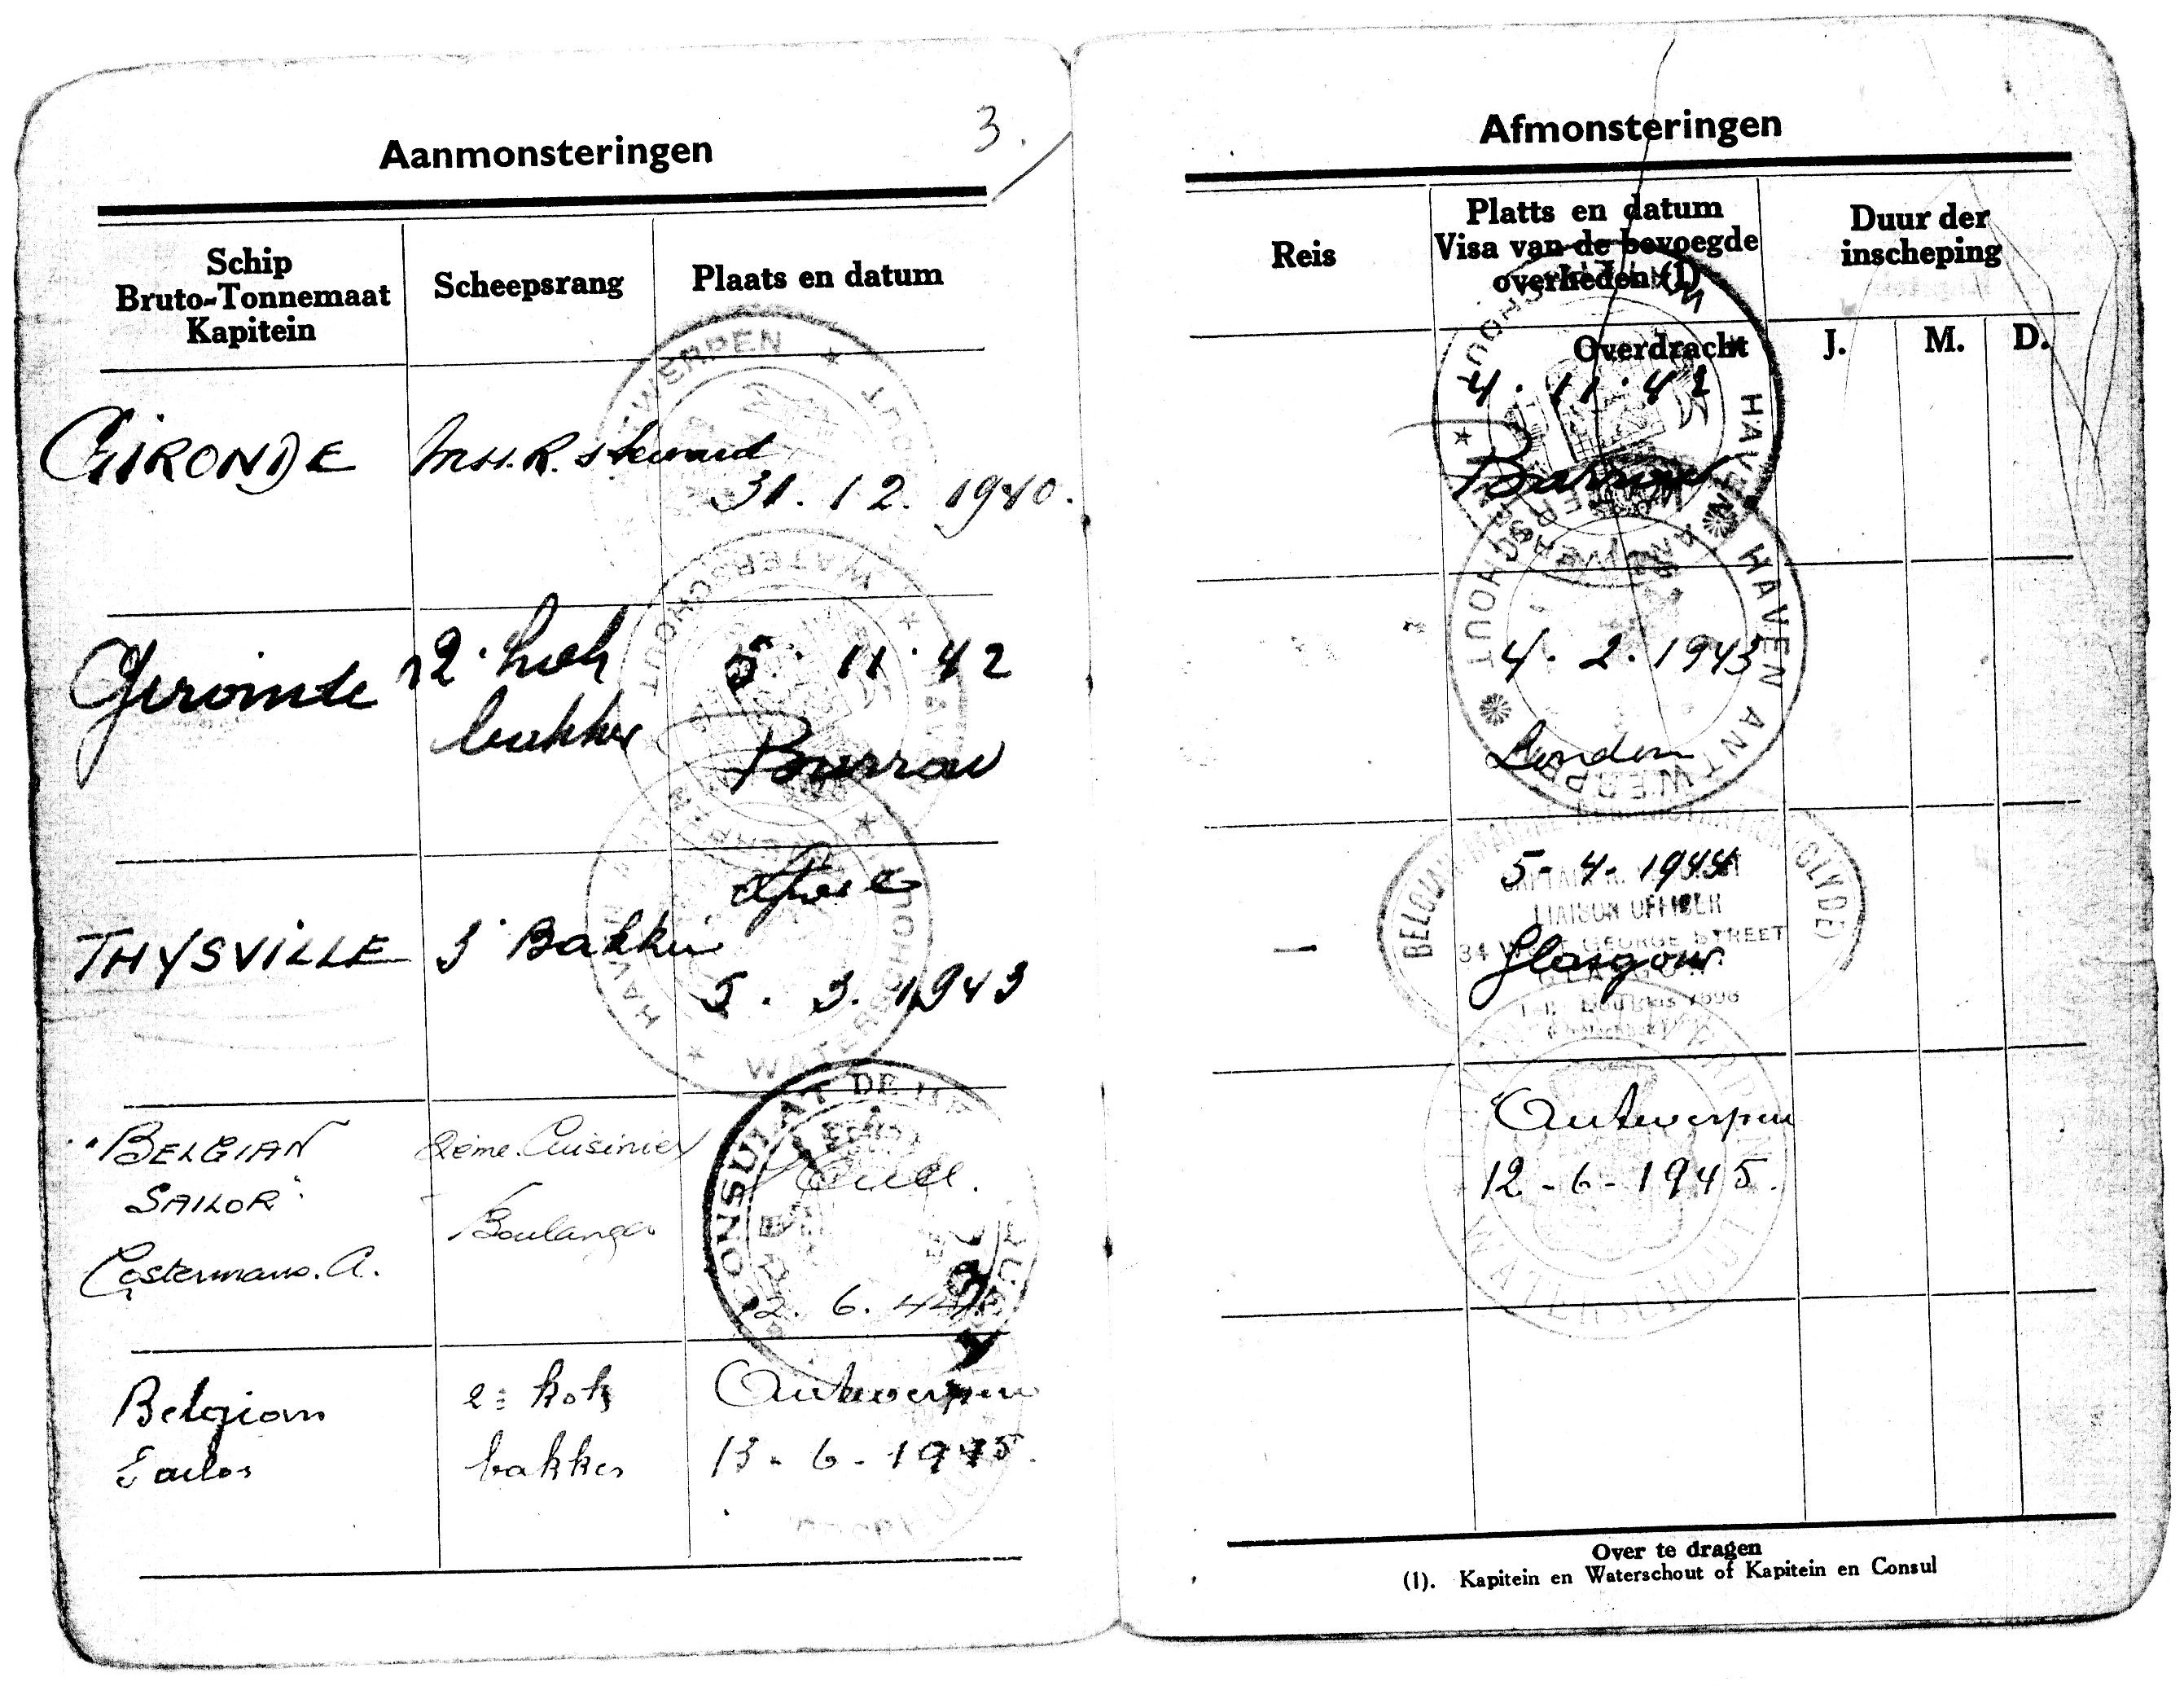 Aanmonsteringen
3.
Schip
Bruto-Tonnemaat
Kapitein
Scheepsrang
Plaats en datum
GIRONDE
steward
31.12.1940.
Gironde
2. kok
bakker
5.11.42
Barrow
THYSVILLE
3 Bakker
5.3.1943
"BELGIAN
SAILOR"
Costermans. A.
2ème. Cuisinier
Boulanger
Hull.
2.6.44
Belgian
Sailor
2e kok
bakker
Antwerpen
13-6-1945.
ANTWERPEN
WATERSCHOUT
HAVEN
WATERSCHOUT
CONSULAT DE
Afmonsteringen
Reis
Platts en datum
Visa van de bevoegde
overheden (1)
Duur der
inscheping
Overdracht
J.
M.
D.
4.11.42
Barrow
4.2.1943
London
5-4-1944
Glasgow
Antwerpen
12-6-1945.
WATERSCHOUT
HAVEN ANTWERPEN
LIAISON OFFICER
GEORGE STREET
(CLYDE)
WATERSCHOUT
Over te dragen
(1). Kapitein en Waterschout of Kapitein en Consul